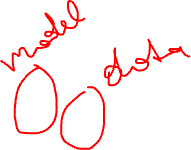 model
data